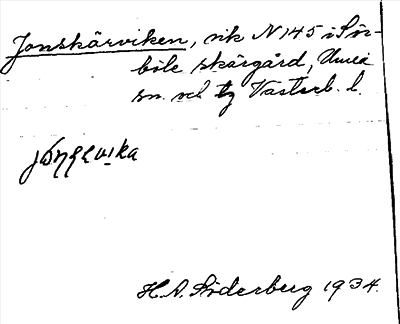 Jonskärviken, vik N 145 i Sör-
böle skärgård, Umeå
sn. och tg Västerb. l.
H. A. Söderberg 1934.